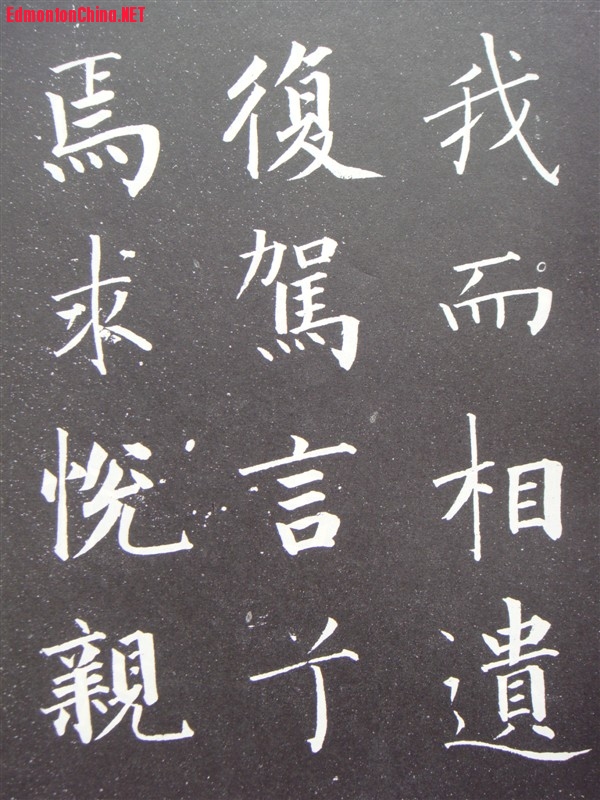 EdmontonChina.NET
我而相遺
復駕言兮
焉求悅親